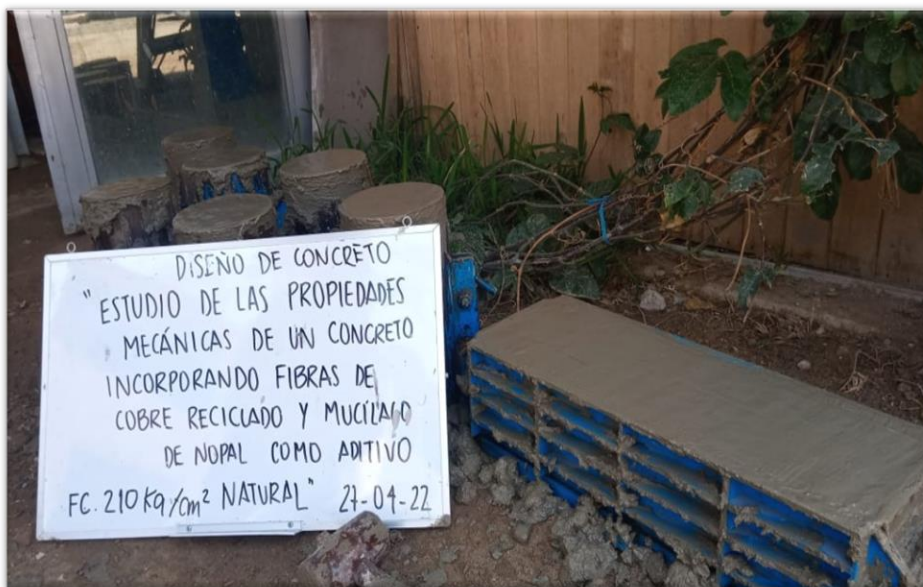 DISEÑO DE CONCRETO
"ESTUDIO DE LAS PROPIEDADES
MECÁNICAS DE UN CONCRETO
INCORPORANDO FIBRAS DE
COBRE RECICLADO Y MUCÍLAGO
DE NOPAL COMO ADITIVO
FC. 210 Kg/cm² NATURAL" 27-04-22